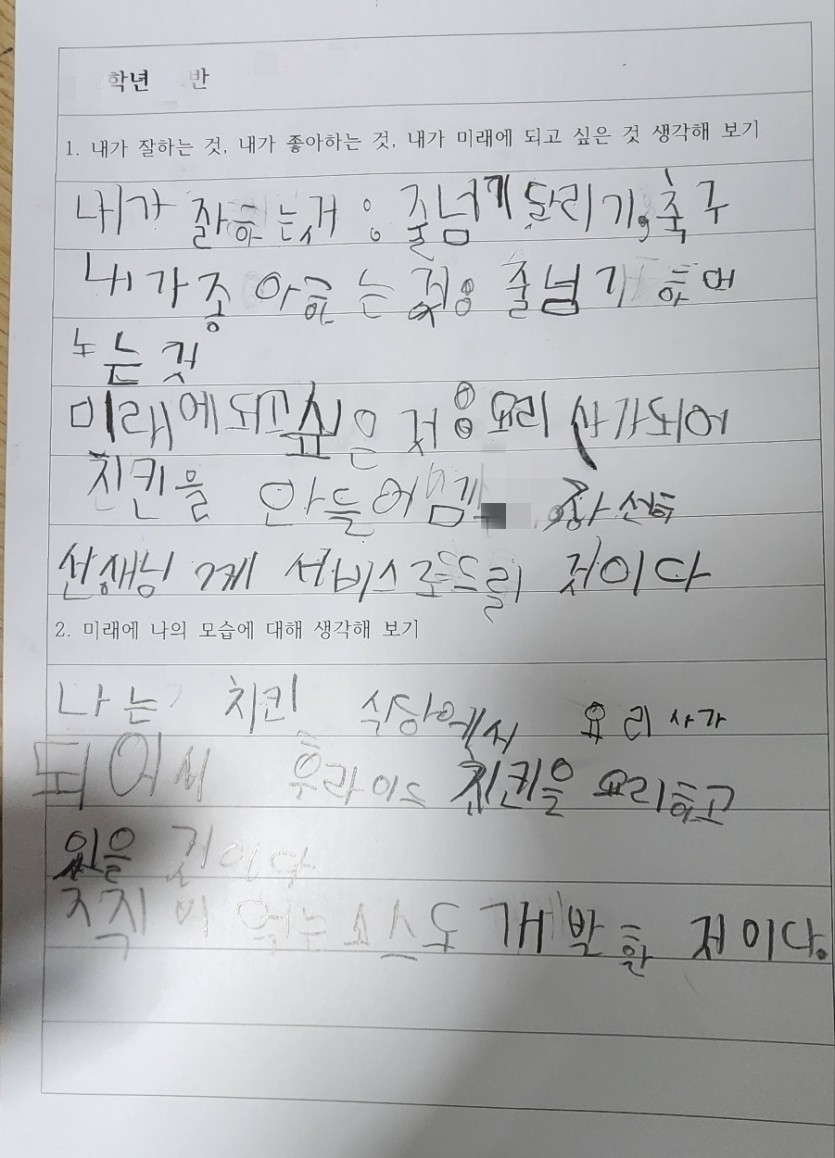 학년 반
1. 내가 잘하는 것, 내가 좋아하는 것, 내가 미래에 되고 싶은 것 생각해 보기
내가 잘하는거 : 줄넘기 달리기, 축구
내가 좋아하는 것: 줄넘기 하며
노는 것
미래에 되고 싶은 것 : 요리사가 되어
치킨을 만들어
선생님 께 서비스로 드릴 것이다
2. 미래에 나의 모습에 대해 생각해 보기
나는 치킨 식당에서 요리사가
되어서 후라이드 치킨을 요리하고
있을 것이다
찍어 먹는 소스도 개발할 것이다.